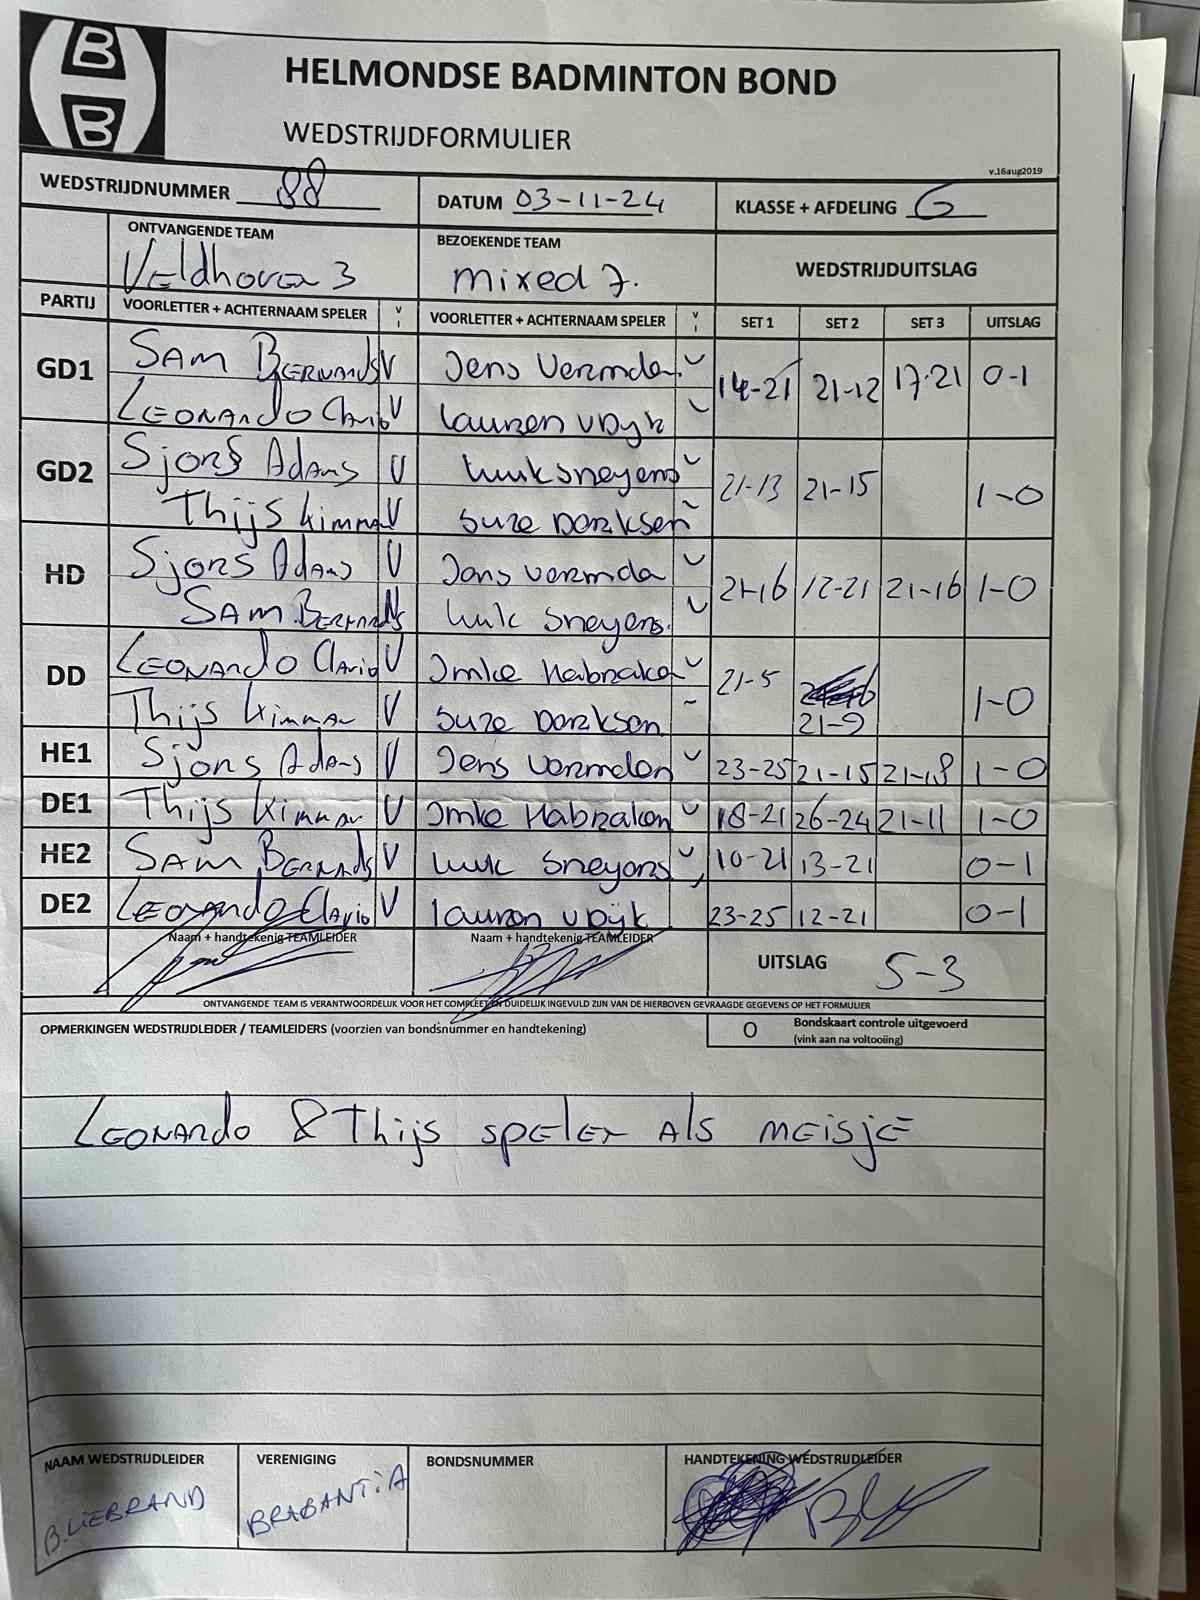 B
B
HELMONDSE BADMINTON BOND
WEDSTRIJDFORMULIER
v.16aug2019
WEDSTRIJDNUMMER 88 DATUM 03-11-24 KLASSE + AFDELING G
ONTVANGENDE TEAM BEZOEKENDE TEAM WEDSTRIJDUITSLAG
Veldhoven 3 mixed 7.
PARTIJ VOORLETTER + ACHTERNAAM SPELER V I VOORLETTER + ACHTERNAAM SPELER V I SET 1 SET 2 SET 3 UITSLAG
GD1 SAM BERNARDS V Jens Vermden V 14-21 21-12 17-21 0-1
LEONARDO Clavio V Lauren vDyk V
GD2 Sjors Adams V Luuk Sneyens V 21-13 21-15 1-0
Thijs Kimman V Suze Derksen
HD Sjors Adams V Jens Vermden V 21-16 12-21 21-16 1-0
SAM BERNARDS Luuk Sneyens. V
DD LEONARDO Clavio V Imke Habraken V 21-5 21-9 1-0
Thijs Kimman V Suze Derksen
HE1 Sjors Adams V Jens Vermden V 23-25 21-15 21-18 1-0
DE1 Thijs Kimman V Imke Habraken V 18-21 26-24 21-11 1-0
HE2 SAM BERNARDS V Luuk Sneyens V 10-21 13-21 0-1
DE2 LEONARDO Clavio V Lauren vDijk 23-25 12-21 0-1
Naam + handtekenig TEAMLEIDER Naam + handtekenig TEAMLEIDER UITSLAG 5-3
ONTVANGENDE TEAM IS VERANTWOORDELIJK VOOR HET COMPLEET EN DUIDELIJK INGEVULD ZIJN VAN DE HIERBOVEN GEVRAAGDE GEGEVENS OP HET FORMULIER
OPMERKINGEN WEDSTRIJDLEIDER / TEAMLEIDERS (voorzien van bondsnummer en handtekening) O Bondskaart controle uitgevoerd
(vink aan na voltooiing)
LEONARDO & Thijs spelen Als meisje
NAAM WEDSTRIJDLEIDER VERENIGING BONDSNUMMER HANDTEKENING WEDSTRIJDLEIDER
B. LIEBRAND BRABANTIA